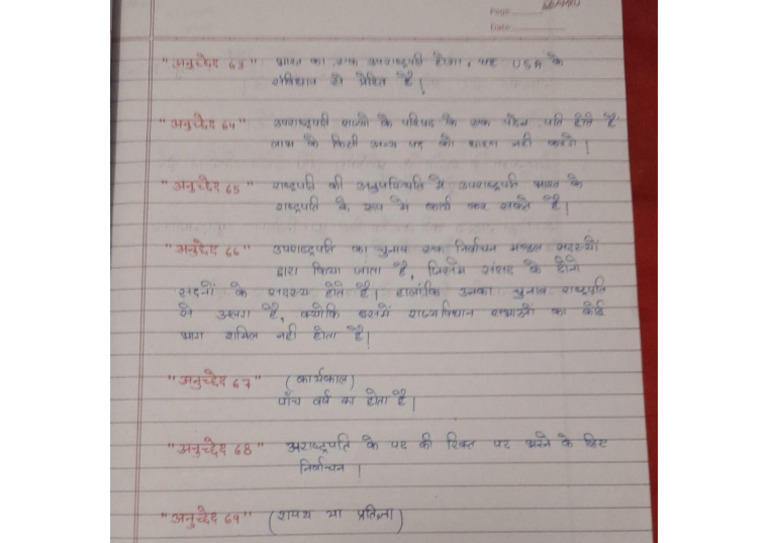 Page
Date
"अनुच्छेद 63" भारत का एक उपराष्ट्रपति होगा, यह USA के
संविधान से प्रेरित है।
"अनुच्छेद 64" उपराष्ट्रपति राज्यों के परिषद के एक पदेन पति होते है
लाभ के किसी अन्य पद को धारण नही करेगा।
"अनुच्छेद 65" राष्ट्रपति की अनुपस्थिति में उपराष्ट्रपति भारत के
राष्ट्रपति के रूप में कार्य कर सकते है।
"अनुच्छेद 66" उपराष्ट्रपति का चुनाव एक निर्वाचन मण्डल सदस्यों
द्वारा किया जाता है, जिसमें संसद के दोनो
सदनों के सदस्य होते है। हालांकि उनका चुनाव राष्ट्रपति
से अलग है, क्योकि इसमें राज्य विधान सभाओं का कोई
भाग शामिल नही होता है।
"अनुच्छेद 67" (कार्यकाल)
पाँच वर्ष का होता है।
"अनुच्छेद 68" उपराष्ट्रपति के पद की रिक्त पर भरने के लिए
निर्वाचन।
"अनुच्छेद 69" (शपथ या प्रतिज्ञा)